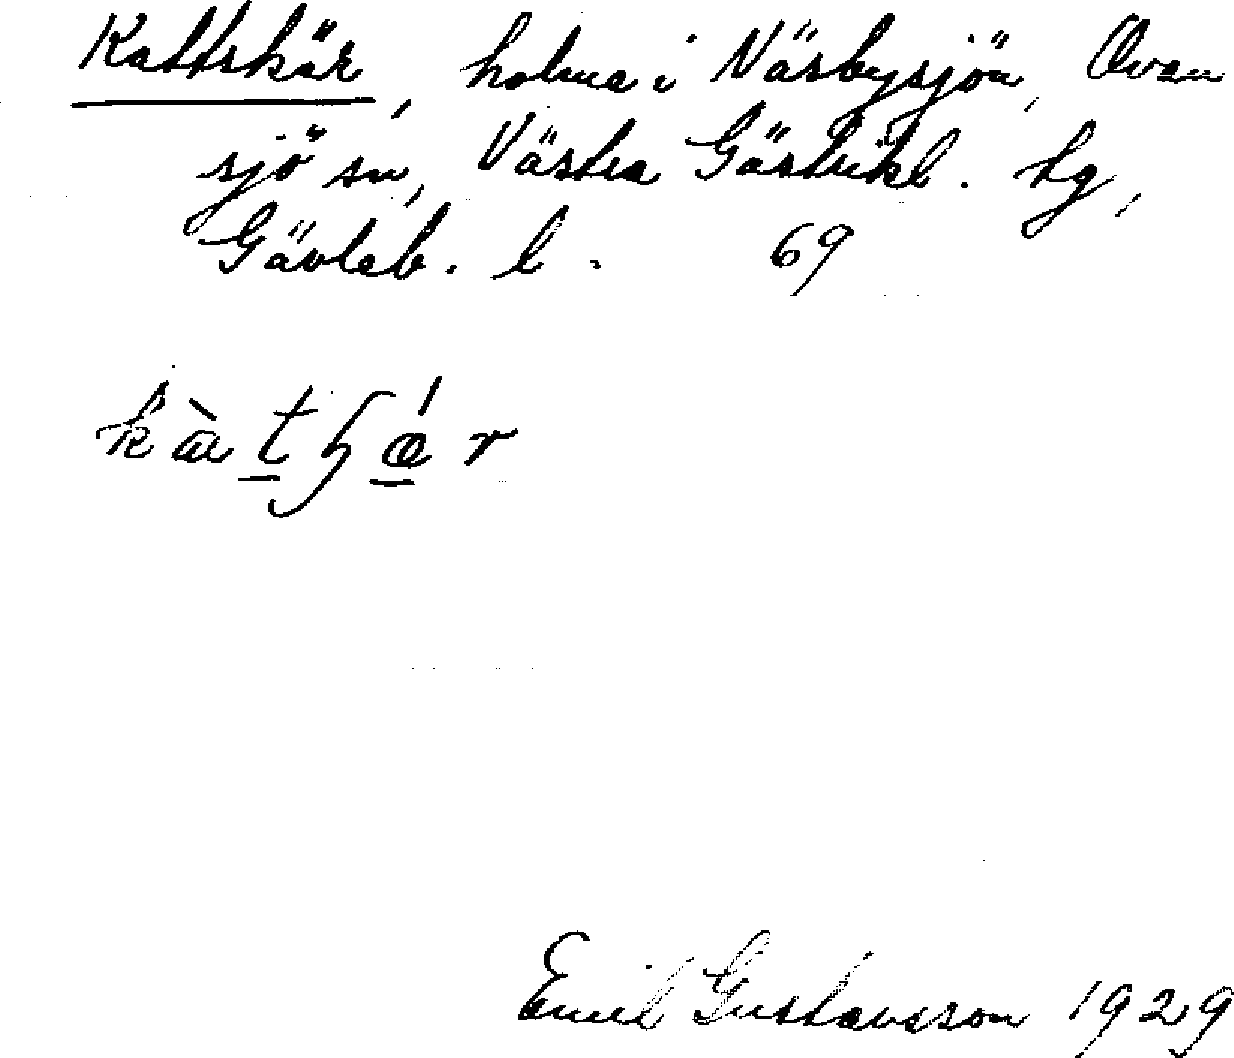 Kattskär, holme i Näsbysjön, Ovan
sjö sn, Västra Gästrikl. tg,
Gävleb. l. 69
kàtʂǽr
Emil Gustavsson 1929